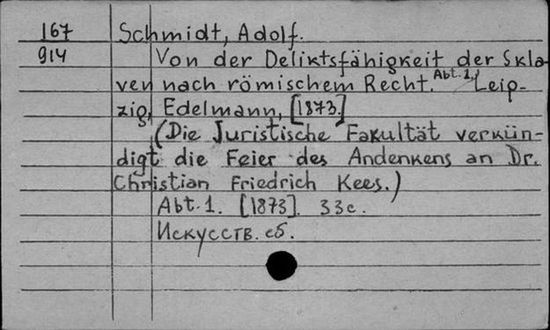 167 Schmidt, Adolf.
914 Von der Deliktsfähigkeit der Skla-
ven nach römischem Recht. Abt. 1. Leip-
zig, Edelmann, [1873.]
(Die Juristische Fakultät verkün-
digt die Feier des Andenkens an Dr.
Christian Friedrich Kees.)
Abt. 1. [1873]. 33 с.
Искусств. сб.